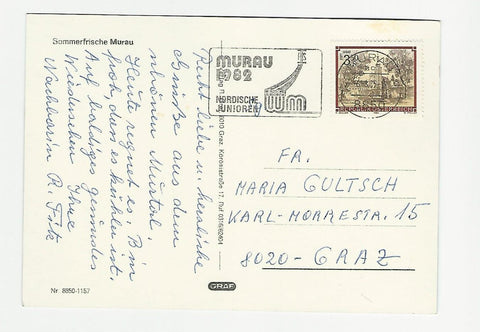 Sommerfrische Murau
Recht liebe u. herzliche
Grüße aus dem
schönen Murtal.
Heute regnet es. Bin
froh, dass es kühler ist.
Auf baldiges gesundes
Wiedersehen Ihre
Nachbarin R. Fitz
Nr. 8850-1157
8010 Graz, Körösistraße 17, Ruf 0316/62604
GRAF
MURAU
1982
NORDISCHE
JUNIOREN
WM
REPUBLIK ÖSTERREICH
FR.
MARIA GULTSCH
KARL-MORRESTR. 15
8020-GRAZ